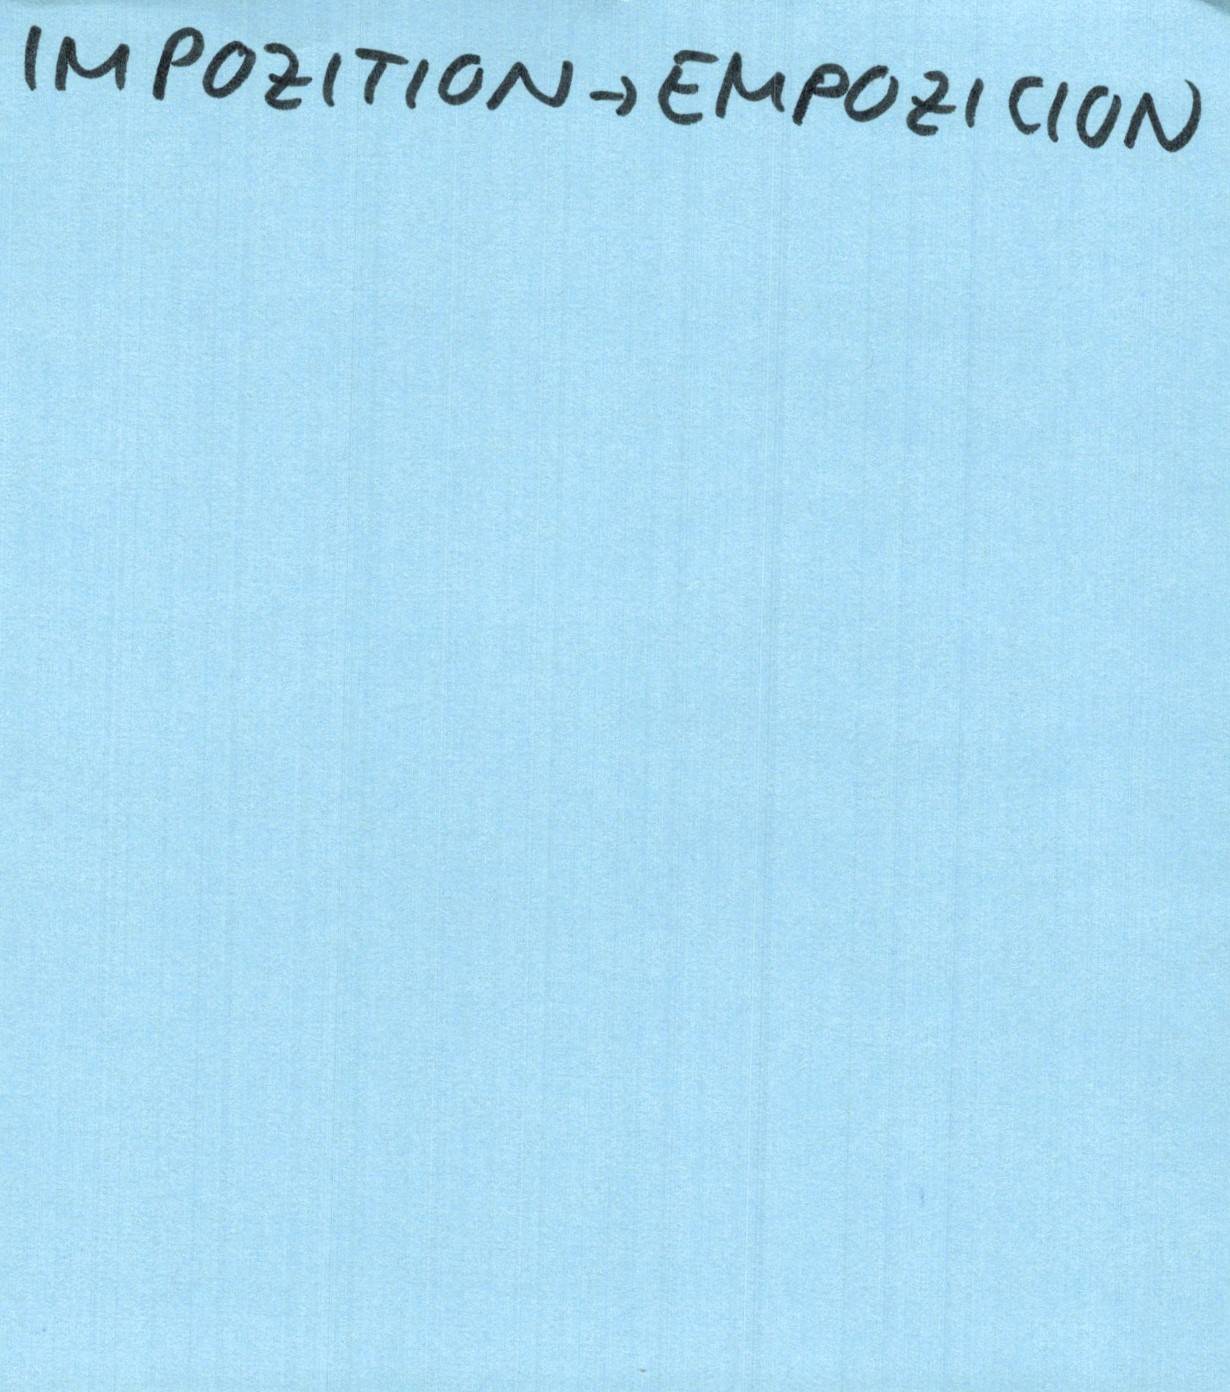 IMPOZITION → EMPOZICION